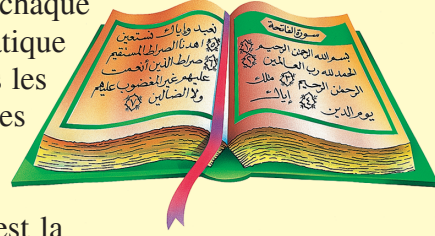 chaque
atique
s les
es
est la
سورة الفاتحة
بسم الله الرحمن الرحيم ١
الحمد لله رب العالمين ٢
الرحمن الرحيم ٣ ملك
يوم الدين ٤ إياك
نعبد وإياك نستعين
٥ اهدنا الصراط المستقيم
٦ صراط الذين أنعمت
عليهم غير المغضوب عليهم
ولا الضالين ٧